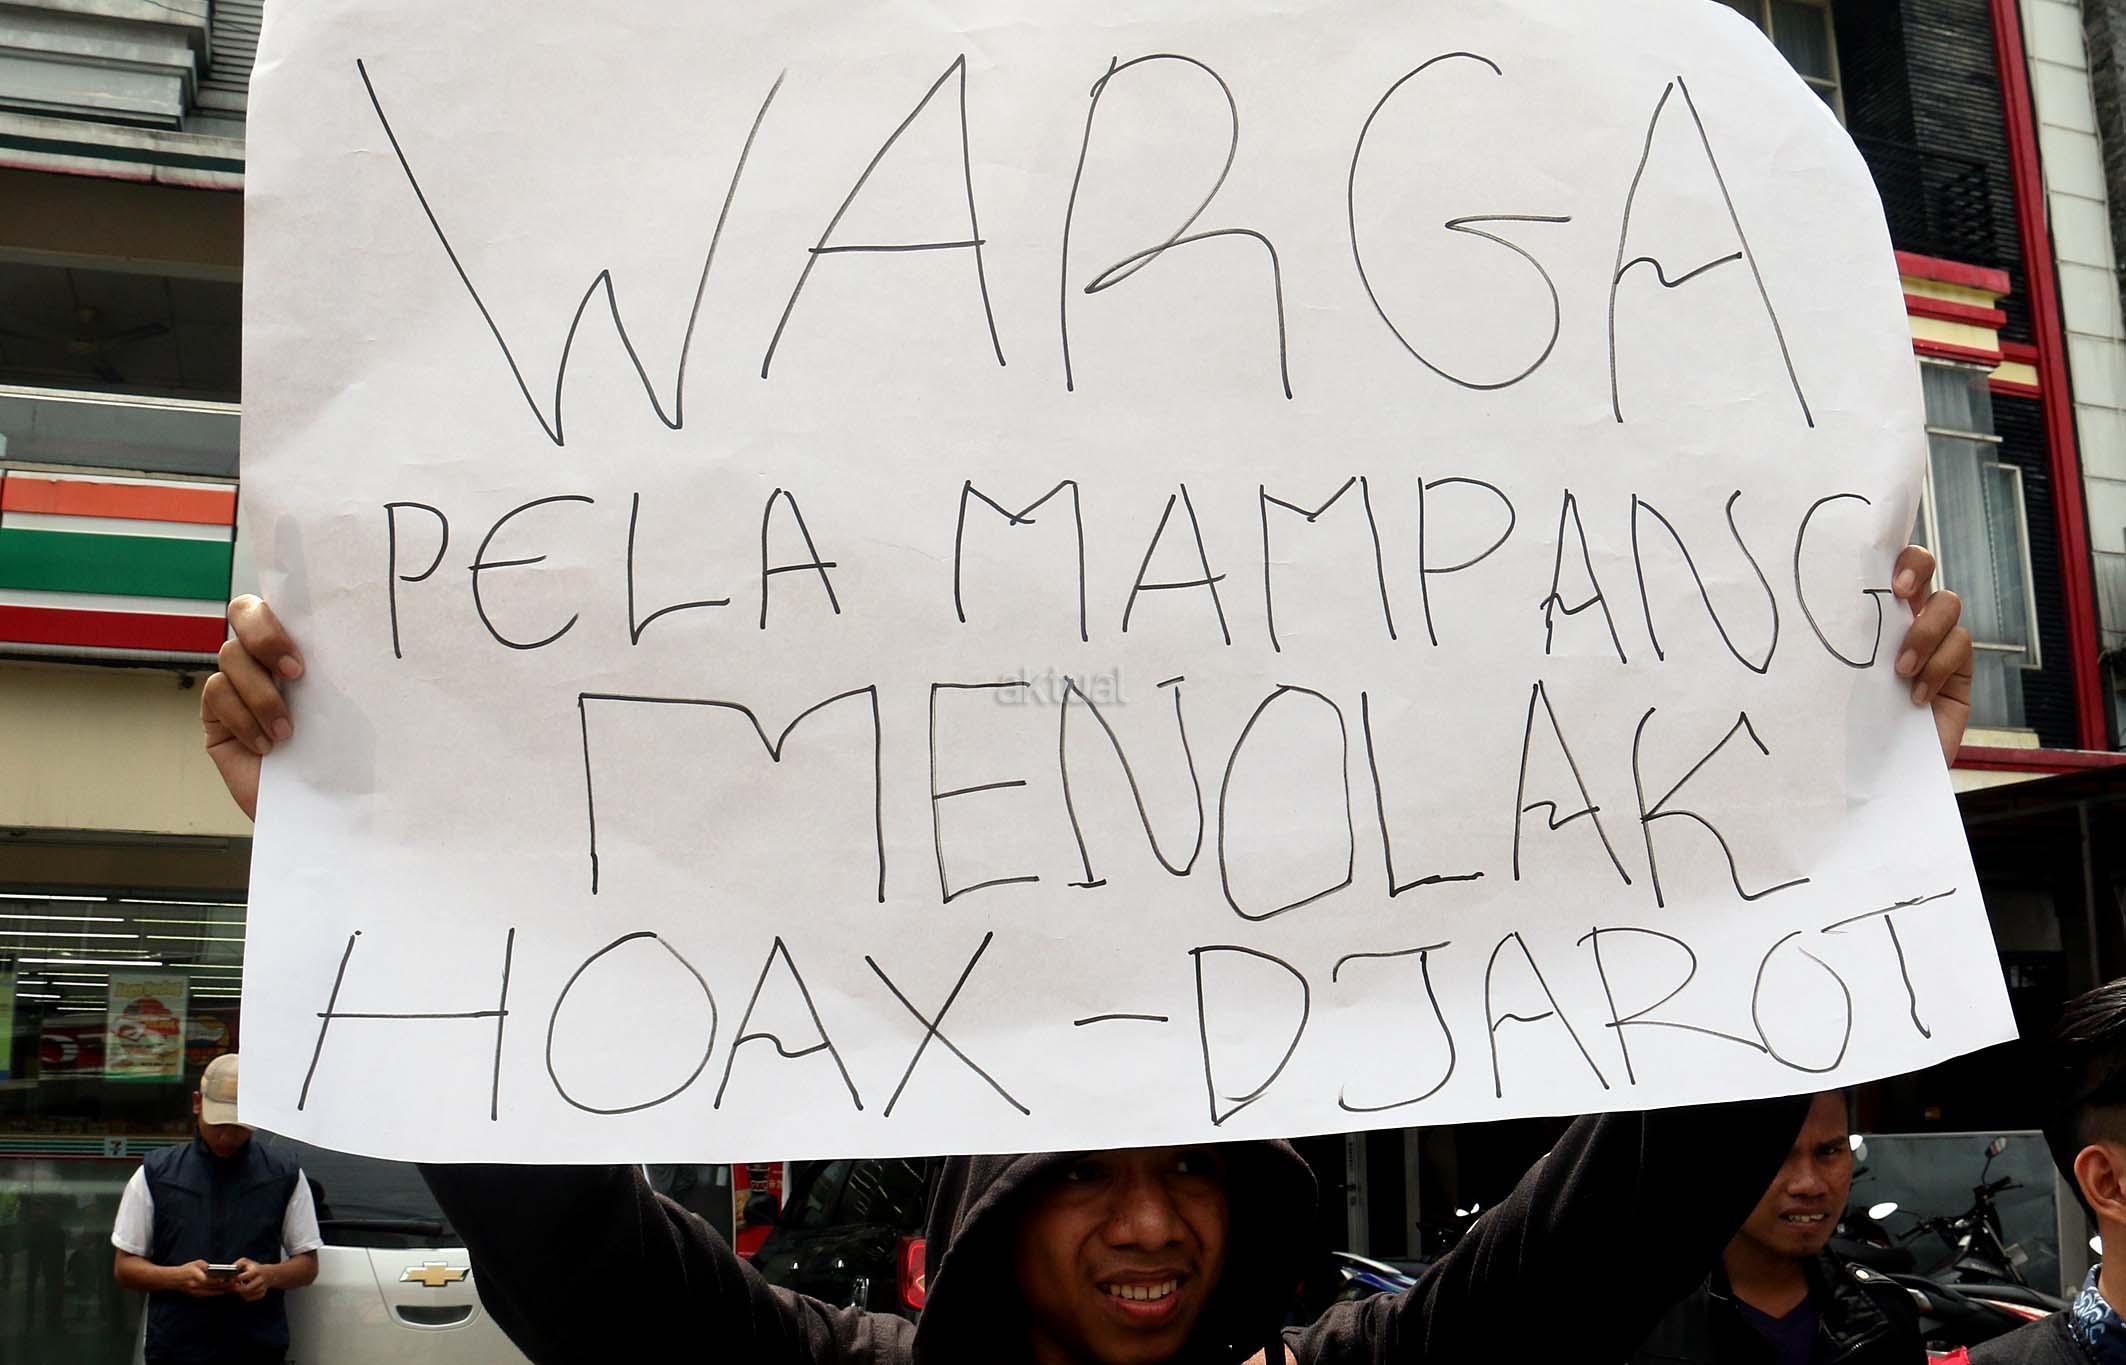 WARGA
PELA MAMPANG
aktual
MENOLAK
HOAX - DJAROT